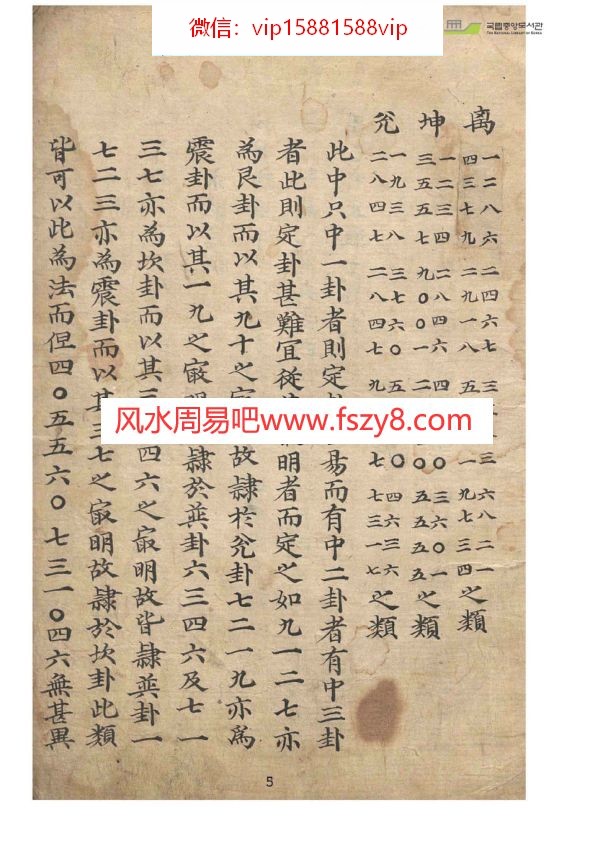 微信：vip15881588vip
국립중앙도서관
THE NATIONAL LIBRARY OF KOREA
离 一二八六 二四六七 三 三 六八二一 之類
四三七九 二九一八 五 一 九七三四
坤 一二三四 二八四六 二 〇 三六〇一 之類
三五五七 九〇〇一 五五五五
兊 一九三八 三七六〇 五 〇 四六三六 之類
二八四七 二八四七 九 七 七三一七
此中只中一卦者則定 易而有中二卦者有中三卦
者此則定卦甚難冝從 明者而定之如九一二七亦
為艮卦而以其九十之 故隷於兊卦七二一九亦為
震卦而以其一九之㝡明 隷於巽卦六三四六及七一
三七亦為坎卦而以其三 四六之㝡明故皆隷巽卦一
七二三亦為震卦而以其 七之㝡明故隷於坎卦此類
皆可以此為法而但四〇五五六〇七三一〇四六無甚異
风水周易吧www.fszy8.com
5